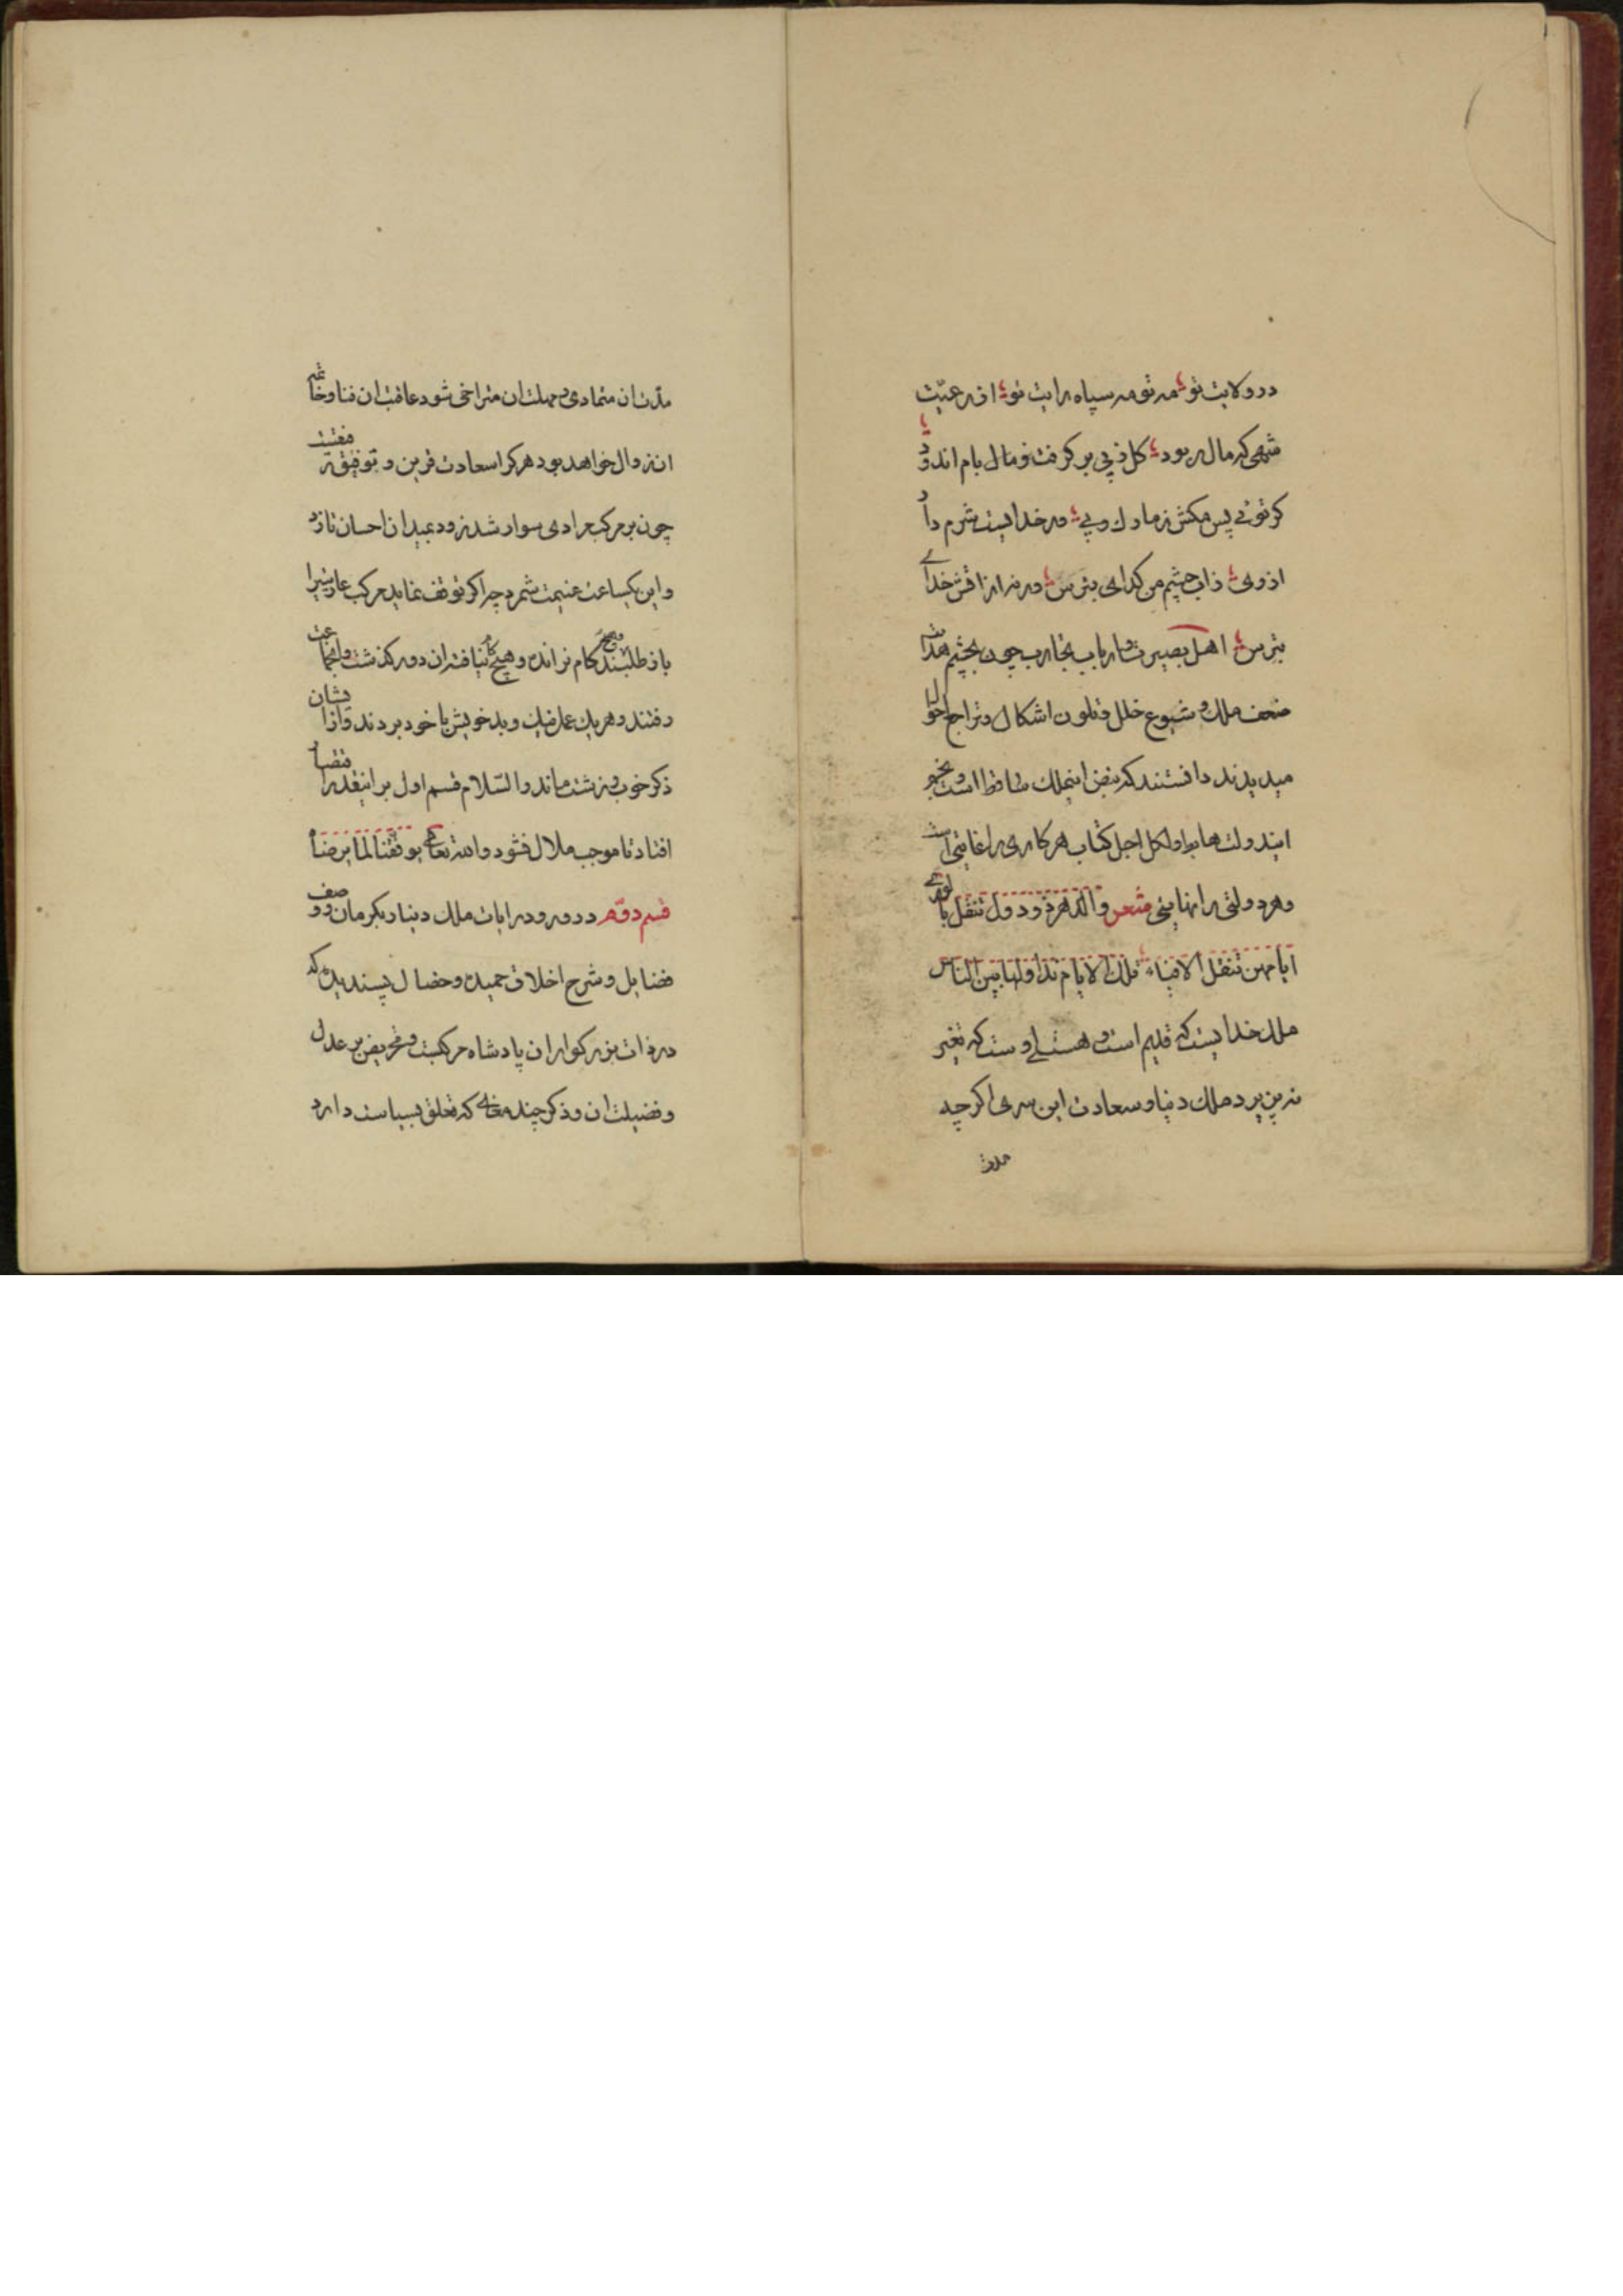 در ولایت تو مه تو مه سپاه رایت تو از رعیّت
شهی که مال ربود کل ز پی بر کرفت و مال بام اندود
کر توئی پس مکش ز مادک وپی ور خدایست شرم دار
از وی ز اب چشم من کدای بترس ور نه از اتش خدای
بترس اهل بصیرت و ارباب تجارب چون بچشم هدایت
ضعف ملک و شیوع خلل و تلون اشکال و تراجع احوال
میدیدند دانستند که نبض اینملک ساقط است و نجم
ایندولت هابط و لکل اجل کتاب هر کاری را غایتی است
و هر دولتی را نهایتی شعر والدهر ذو دول تنقل بالوری
ایامهن تنقل الافیاء تلک الایام نداولها بین الناس
ملک خدایست که قدیم است و هستی اوست که تغیر
نپذیرد ملک دنیا و سعادت این سری اکر چه
مدت
مدّت ان متمادی و مهلت ان متراخی شود عاقبت ان فنا و خاتمه
ان زوال خواهد بود هر کرا سعادت قرین و توفیق رفیقست
چون بر مرکب مرادی سوار شد زود بمیدان احسان تازد
و این یکساعت غنیمت شمرد چه اکر توقف نماید مرکب عاریتیرا
باز طلبند هیچ کام نرانده و هیچ کار نیافته ان دور کذشت و انجماعت
رفتند و هر یک عمل نیک و بد خویش با خود بردند و از ایشان
ذکر خوب و زشت ماند والسّلام قسم اول بر اینقدر اقتصار
افتاد تا موجب ملال نشود والله تعالی یوفقنا لما یرضاه
قسم دوّم در ورود رایات ملک دینار بکرمان و وصف
فضایل و شرح اخلاق حمیده و خصال پسندیده که
در ذات بزرکوار ان پادشاه مرکبست و تحریض بر عدل
و فضیلت ان و ذکر چند مقاله که تعلق بسیاست دارد